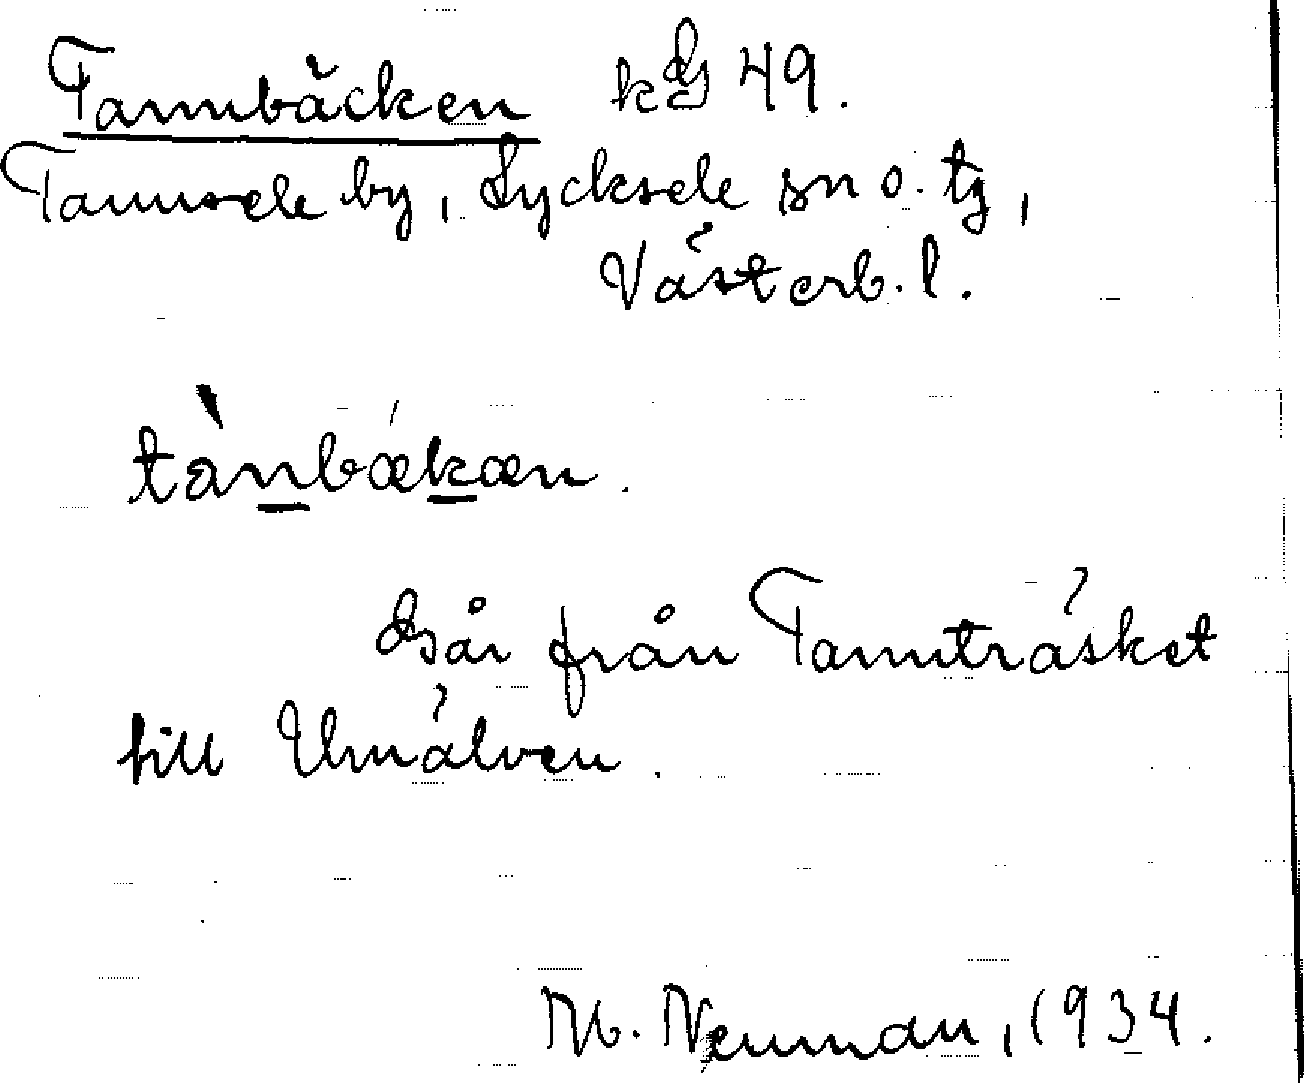 Tannbäcken kG 49.
Tannsele by, Lycksele sn o. tg,
Västerb. l.
tànbǽkæn.
Går från Tannträsket
till Umälven.
M. Neuman, 1934.